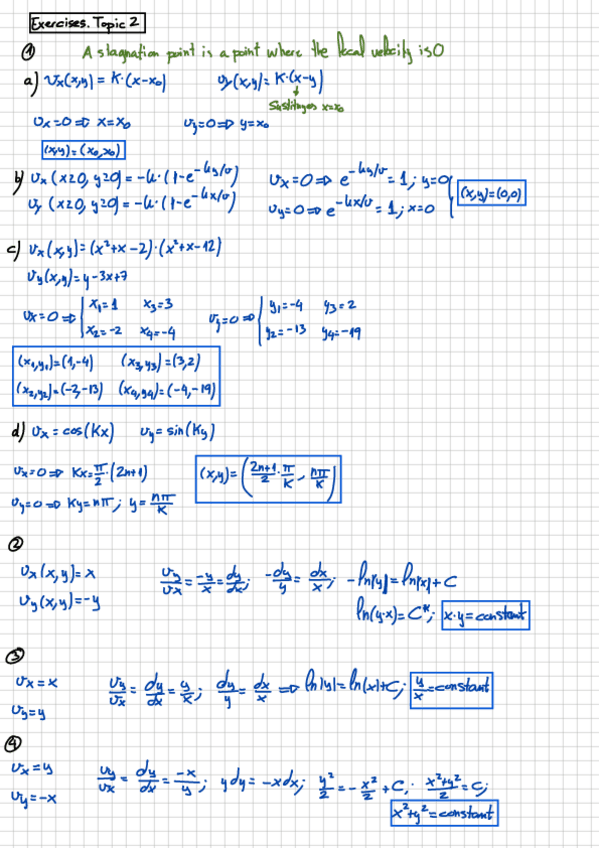 Exercises. Topic 2
① A stagnation point is a point where the local velocity is 0
a) υx(x,y) = K·(x-x₀) υy(x,y) = K·(x-y)
↓
x=x₀
υx=0 ⇒ x=x₀ υy=0 ⇒ y=x₀
(x,y) = (x₀,x₀)
b) υx (x≥0, y≥0) = -u·(1-e^(-uy/υ)) υx=0 ⇒ e^(-uy/υ) = 1; y=0
υy (x≥0, y≥0) = -u·(1-e^(-ux/υ)) υy=0 ⇒ e^(-ux/υ) = 1; x=0 (x,y)=(0,0)
c) υx(x,y) = (x²+x-2)·(x²+x-12)
υy(x,y) = y-3x+7
υx=0 ⇒ x₁=1 x₃=3 υy=0 ⇒ y₁=-4 y₃=2
x₂=-2 x₄=-4 y₂=-13 y₄=-19
(x₁,y₁)=(1,-4) (x₃,y₃)=(3,2)
(x₂,y₂)=(-2,-13) (x₄,y₄)=(-4,-19)
d) υx = cos(Kx) υy = sin(Ky)
υx=0 ⇒ Kx=π/2·(2n+1) (x,y) = (2n+1/2·π/K, nπ/K)
υy=0 ⇒ Ky=nπ; y=nπ/K
②
υx(x,y)=x υy/υx = -y/x = dy/dx; -dy/y = dx/x; -ln|y| = ln|x|+C
υy(x,y)=-y ln(y·x)=C*; x·y=constant
③
υx=x υy/υx = dy/dx = y/x; dy/y = dx/x ⇒ ln|y| = ln|x|+C; y/x=constant
υy=y
④
υx=y υy/υx = dy/dx = -x/y; y dy = -x dx; y²/2 = -x²/2 + C; x²+y²/2 = C;
υy=-x x²+y²=constant